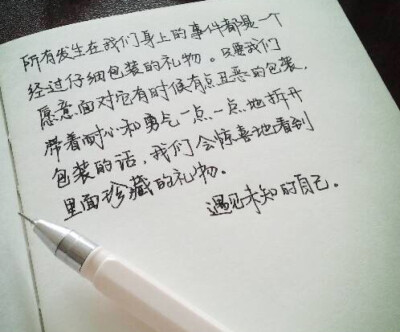 所有发生在我们身上的事件都是一个
经过仔细包装的礼物。只要我们
愿意面对它有时候有点丑恶的包装，
带着耐心和勇气一点一点地拆开
包装的话，我们会惊喜地看到
里面珍藏的礼物。
遇见未知的自己。